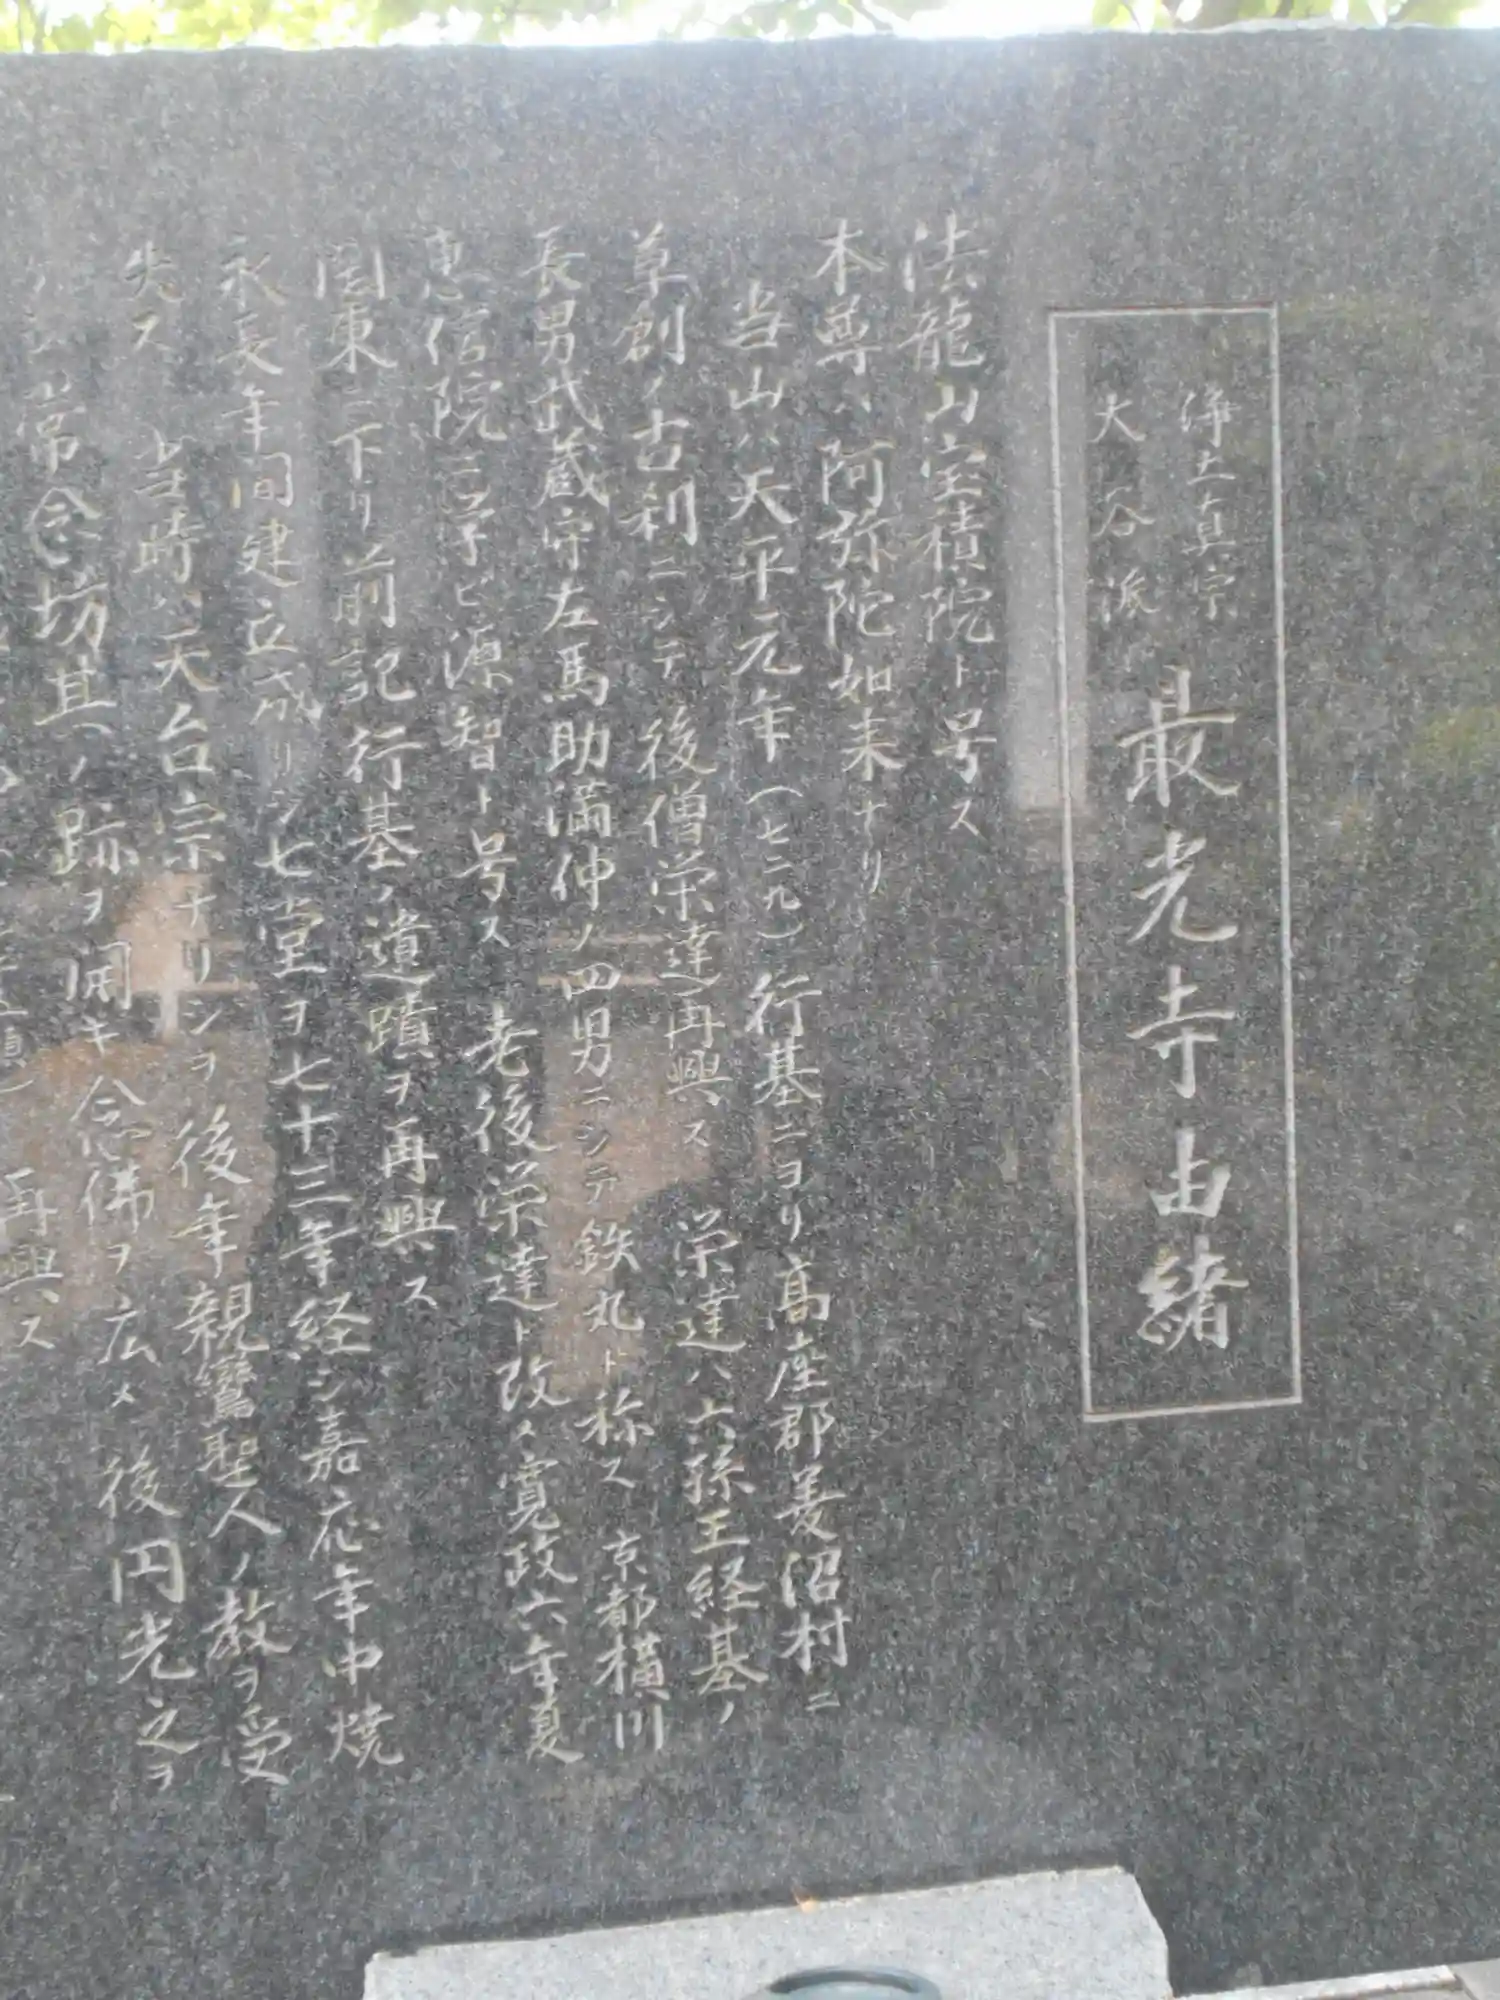 浄土真宗
大谷派
最光寺由緒
法龍山宝積院ト号ス
本尊ハ阿弥陀如来ナリ
当山ハ天平元年(七二九)行基ニヨリ高座郡菱沼村ニ
草創ノ古刹ニシテ後僧栄達再興ス 栄達ハ六孫王経基ノ
長男武蔵守左馬助満仲ノ四男ニシテ鉄丸ト称ス 京都横川
恵信院ニ学ビ源智ト号ス 老後栄達ト改メ寛政六年夏
関東ニ下リ前記行基ノ遺蹟ヲ再興ス
永長年間建立成リシ七堂ヲ七十三年経シ嘉応年中焼
失ス 当時ハ天台宗ナリシヲ後年親鸞聖人ノ教ヲ受
常念坊其ノ跡ヲ開キ念佛ヲ広メ 後円光之ヲ
再興ス